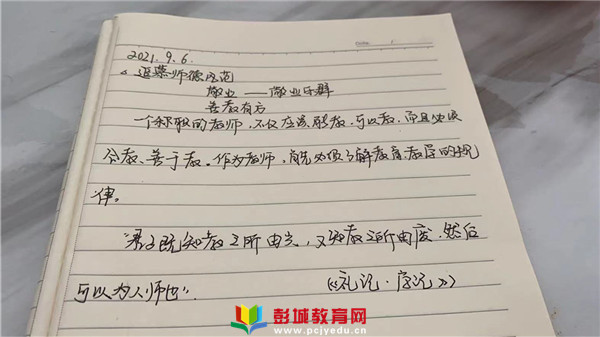 2021.9.6.
追慕师德风范
敬业——敬业乐群
善教有方
一个称职的老师,不仅应该能教、可以教,而且必须
会教、善于教。作为老师,首先必须了解教育教学的规
律。
"君子既知教之所由兴,又知教之所由废,然后
可以为人师也".
《礼记·学记》
彭城教育网
www.pcjyedu.cn